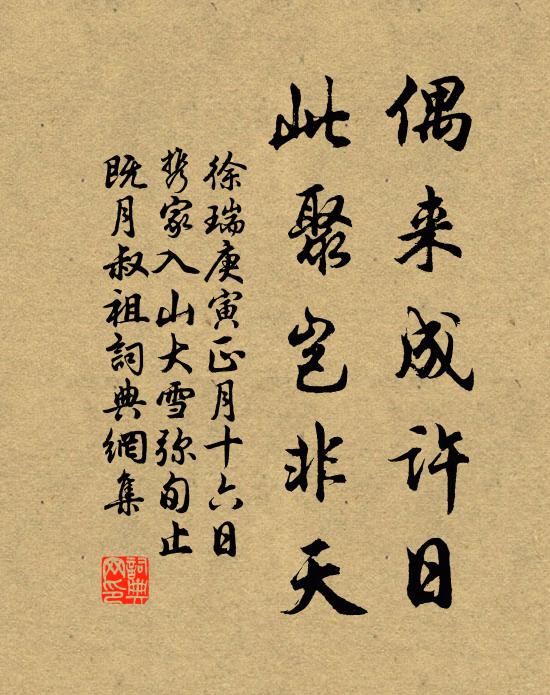 偶来成许日
此聚岂非天
徐瑞庚寅正月十六日
携家入山大雪弥旬止
既月叔祖詞典網集
詞典
网印